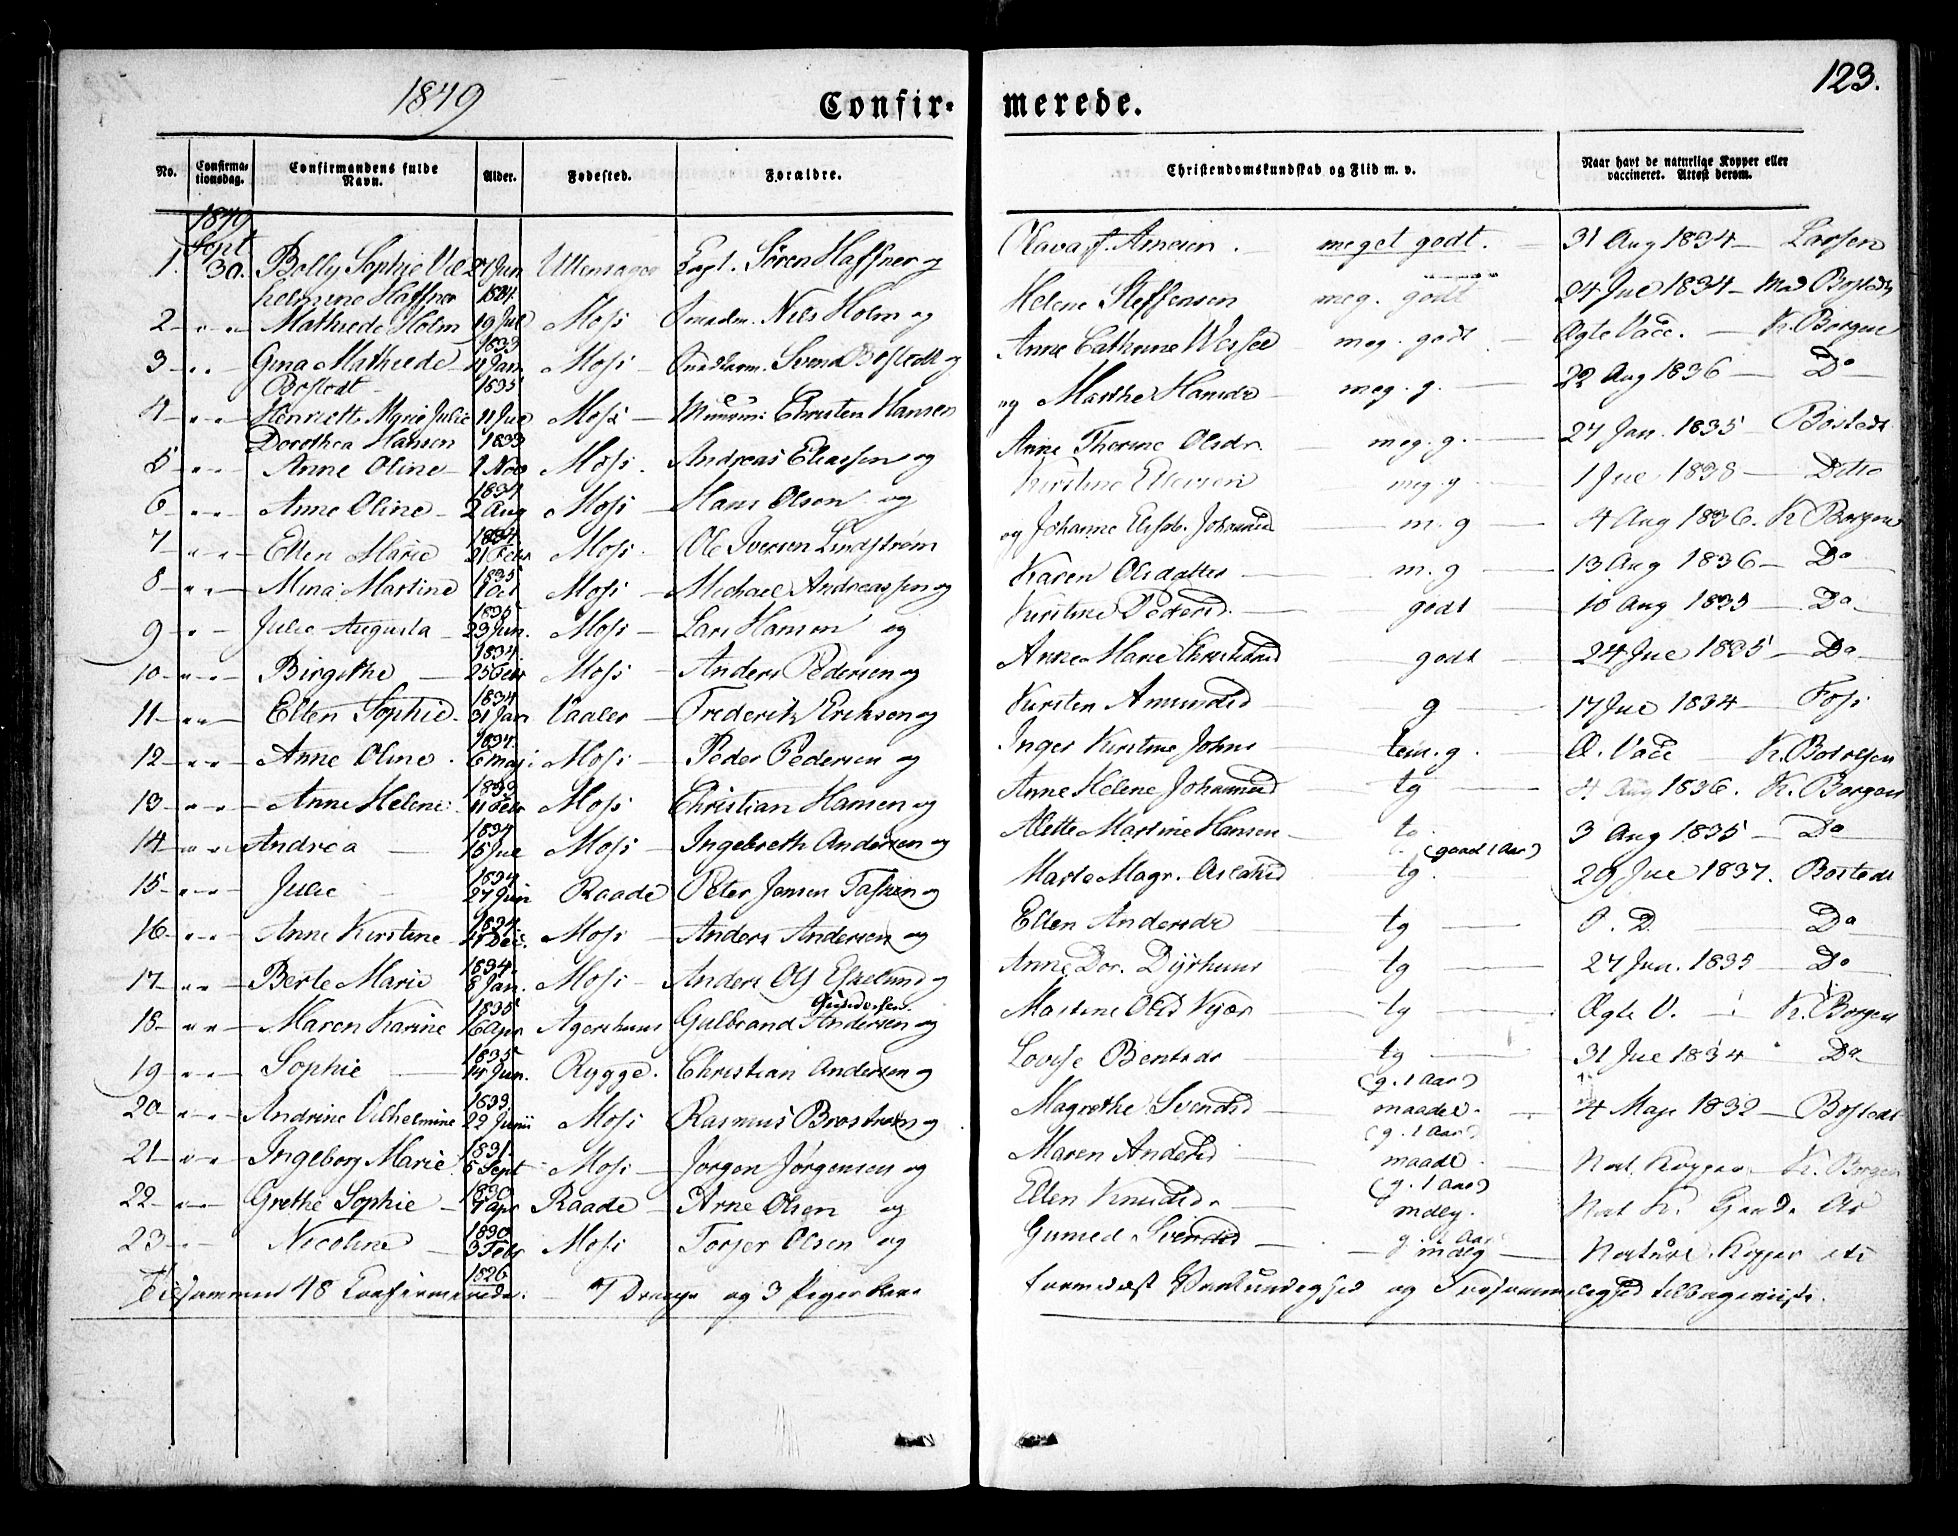 1849
Confir-
merede.
123.
No.
Confirma-
tionsdag.
Confirmandens fulde
Navn.
Alder.
Fødested.
Forældre.
Christendomskundskab og Flid m. v.
Naar havt de naturlige Kopper eller
vaccineret. Attest derom.
1849
Sept
1. 30. Bolly Sophie Vil- 27 Jun Søren Haffner og Olava Arnesen. meget godt. 31 Aug 1834 Larsen
helmine Haffner 1834
2 Mathilde Holm 19 Jul Moss Nils Holm og Helene Steffensen meg. godt 24 Jul 1834 Mad Bostedt
1833
3 Gina Mathilde 11 Jan Moss Svend Bostedt og Anne Cathrine meg. godt Ægte Vacc. K. Borgen
Bostedt 1835
4 Henriette Marie Julie 11 Jul Moss Christen Hansen og Marthe Hansdr meg. g. 22 Aug 1836 Do
Dorothea Hansen 1833
5 Anne Oline 2 Nov Moss. Andreas Eliassen og Anne Therine Olsdr. meg. g. 27 Jan. 1835 Bostedt
1834
6 Anne Oline 2 Aug Moss Hans Olsen og Kirstine meg. g 1 Jul 1838 Ditto
1834
7 Ellen Marie 21 Febr Moss. Ole Iversen Lindstrøm og Johanne m. g 4 Aug 1836. K Borgen
1835
8 Mina Martine 1 Oct Moss Michael Andreassen og Karen Olsdatter m. g 13 Aug 1836 Do
1835
9 Julie Augusta 23 Jun. Moss Lars Hansen og Kirstine Pedersd. godt 10 Aug 1835 Do
1834
10 Birgithe 25 Febr Moss Anders Pedersen og Anne Marie godt 24 Jul 1835 Do
1834
11 Ellen Sophie 31 Jan Vaaler Frederik Eriksen og Kirsten Amundsd g 17 Jul 1834 Foss
1834
12 Anne Oline. 6 Mai Moss Peder Pedersen og Inger Kirstine Johns tem. g. Æ. Vacc K.
1833
13 Anne Helene 11 Febr Moss Christian Hansen og Anne Helene Johannesd tg 4 Aug 1836. K. Borgen
1834
14 Andrea 15 Jul Moss Ingebreth Andersen og Alette Martine Hansen tg. 3 Aug 1835 Do
1834 (gaaet 1 Aar)
15 Julie 27 Jun Raade Peter Jansen og Marte Magr. Aslaksd tg. 29 Jul 1837. Bostedt
1834
16 Anne Kirstine Dec. Moss Anders Andersen og Ellen Andersdr tg Do
1834.
17 Berte Marie 8 Jan. Moss Anders Ols og Anne Dor. tg 27 Jun. 1835 Do
1835 Gundersen
18 Maren Karine 16 Apr Agershuus Gulbrand Andersen og Martine Olsd tg Ægte V. K. Borgen
1835
19 Sophie 14 Jun. Rygge. Christian Andersen og Lovise Bentsdr tg 31 Jul 1834 Do
1833 (g. 1 Aar)
20 Andrine Vilhelmine 22 Junii Moss Rasmus og Magrethe Svendsd maadel. 4 Mai 1832 Bostedt
1831 (g. 1 Aar)
21 Ingeborg Marie 5 Sept Moss Jørgen Jørgensen og Maren Andersd maadl. Nat. Kopper K. Borgen
1830 (g. 1 Aar)
22 Grethe Sophie 7 Apr Raade Arne Olsen og Ellen Knudsd mdlg. Nat K.
1830 g. 1 Aar
23 Nicoline 3 Febr Moss Torger Olsen og Gunild Svendsd mdlg Naturl. Kopper
1826
Tilsammen 48 Confirmerede. 7 Drenge og 3 Piger bleve formedelst Vankundighed og Forsømmelighed tilbageviste.